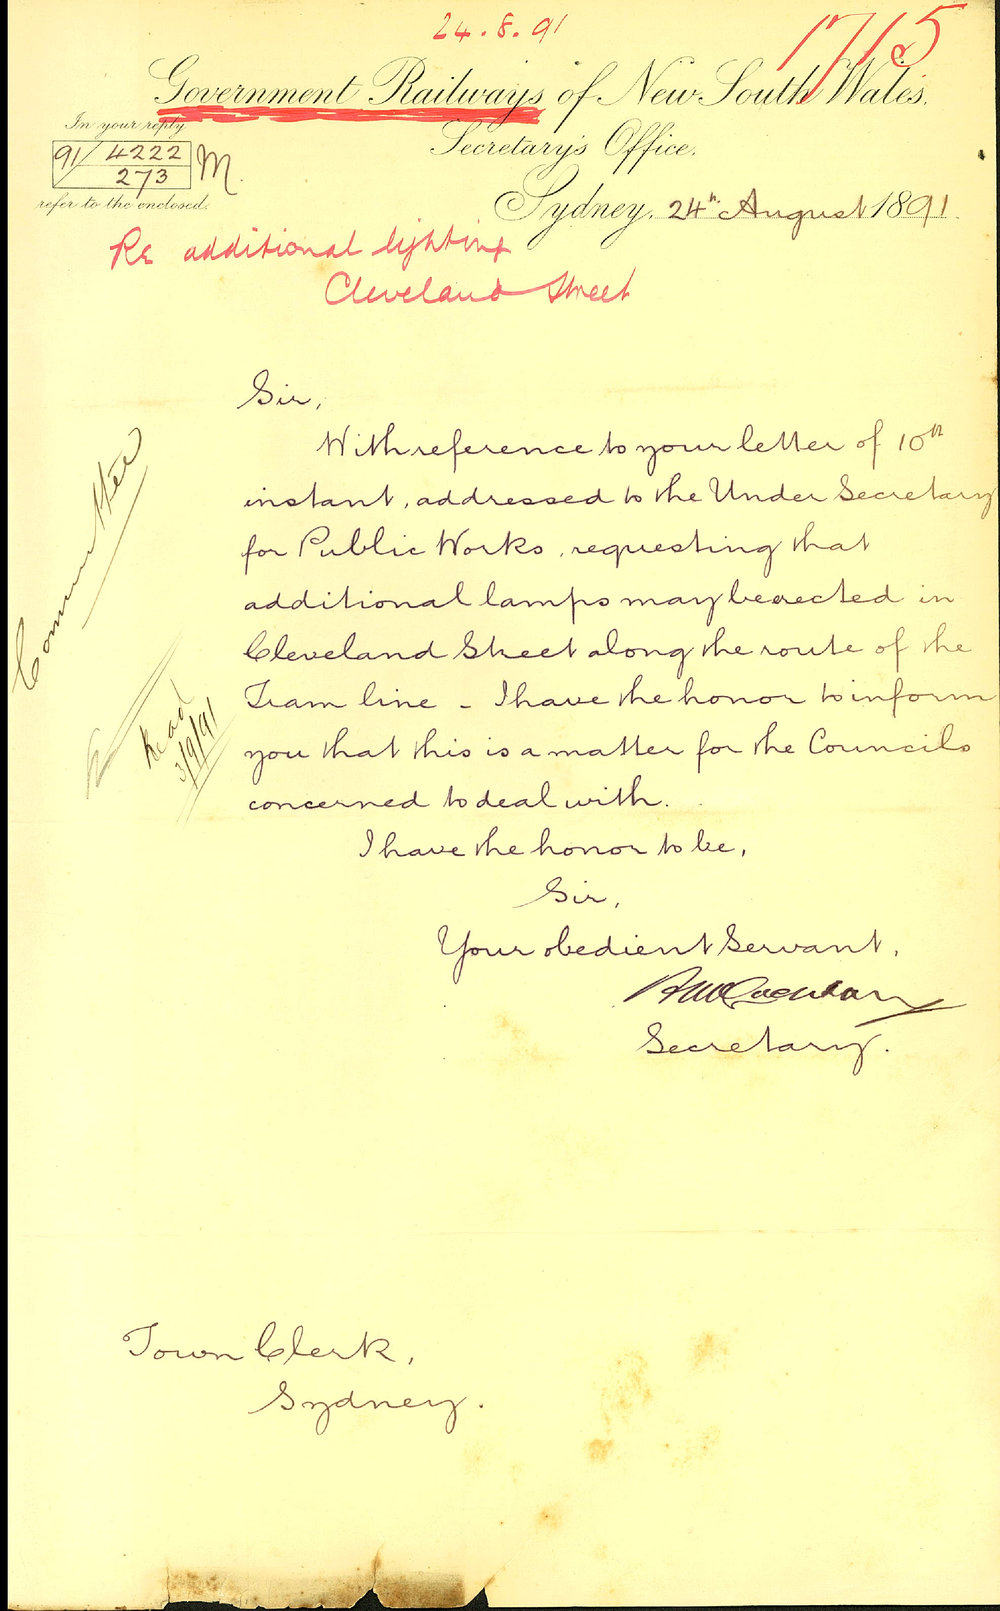 24.8.91
1715
Government Railways of New South Wales.
In your reply
Secretary's Office.
91/4222
273
M.
refer to the enclosed.
Sydney, 24th August 1891.
Re additional lighting
Cleveland Street
Sir,
With reference to your letter of 10th
instant, addressed to the Under Secretary
for Public Works, requesting that
additional lamps may be erected in
Cleveland Street along the route of the
Tram line - I have the honor to inform
you that this is a matter for the Councils
concerned to deal with.
I have the honor to be,
Sir,
Your obedient Servant,
Secretary.
Committee
Read
3/9/91
Town Clerk,
Sydney.